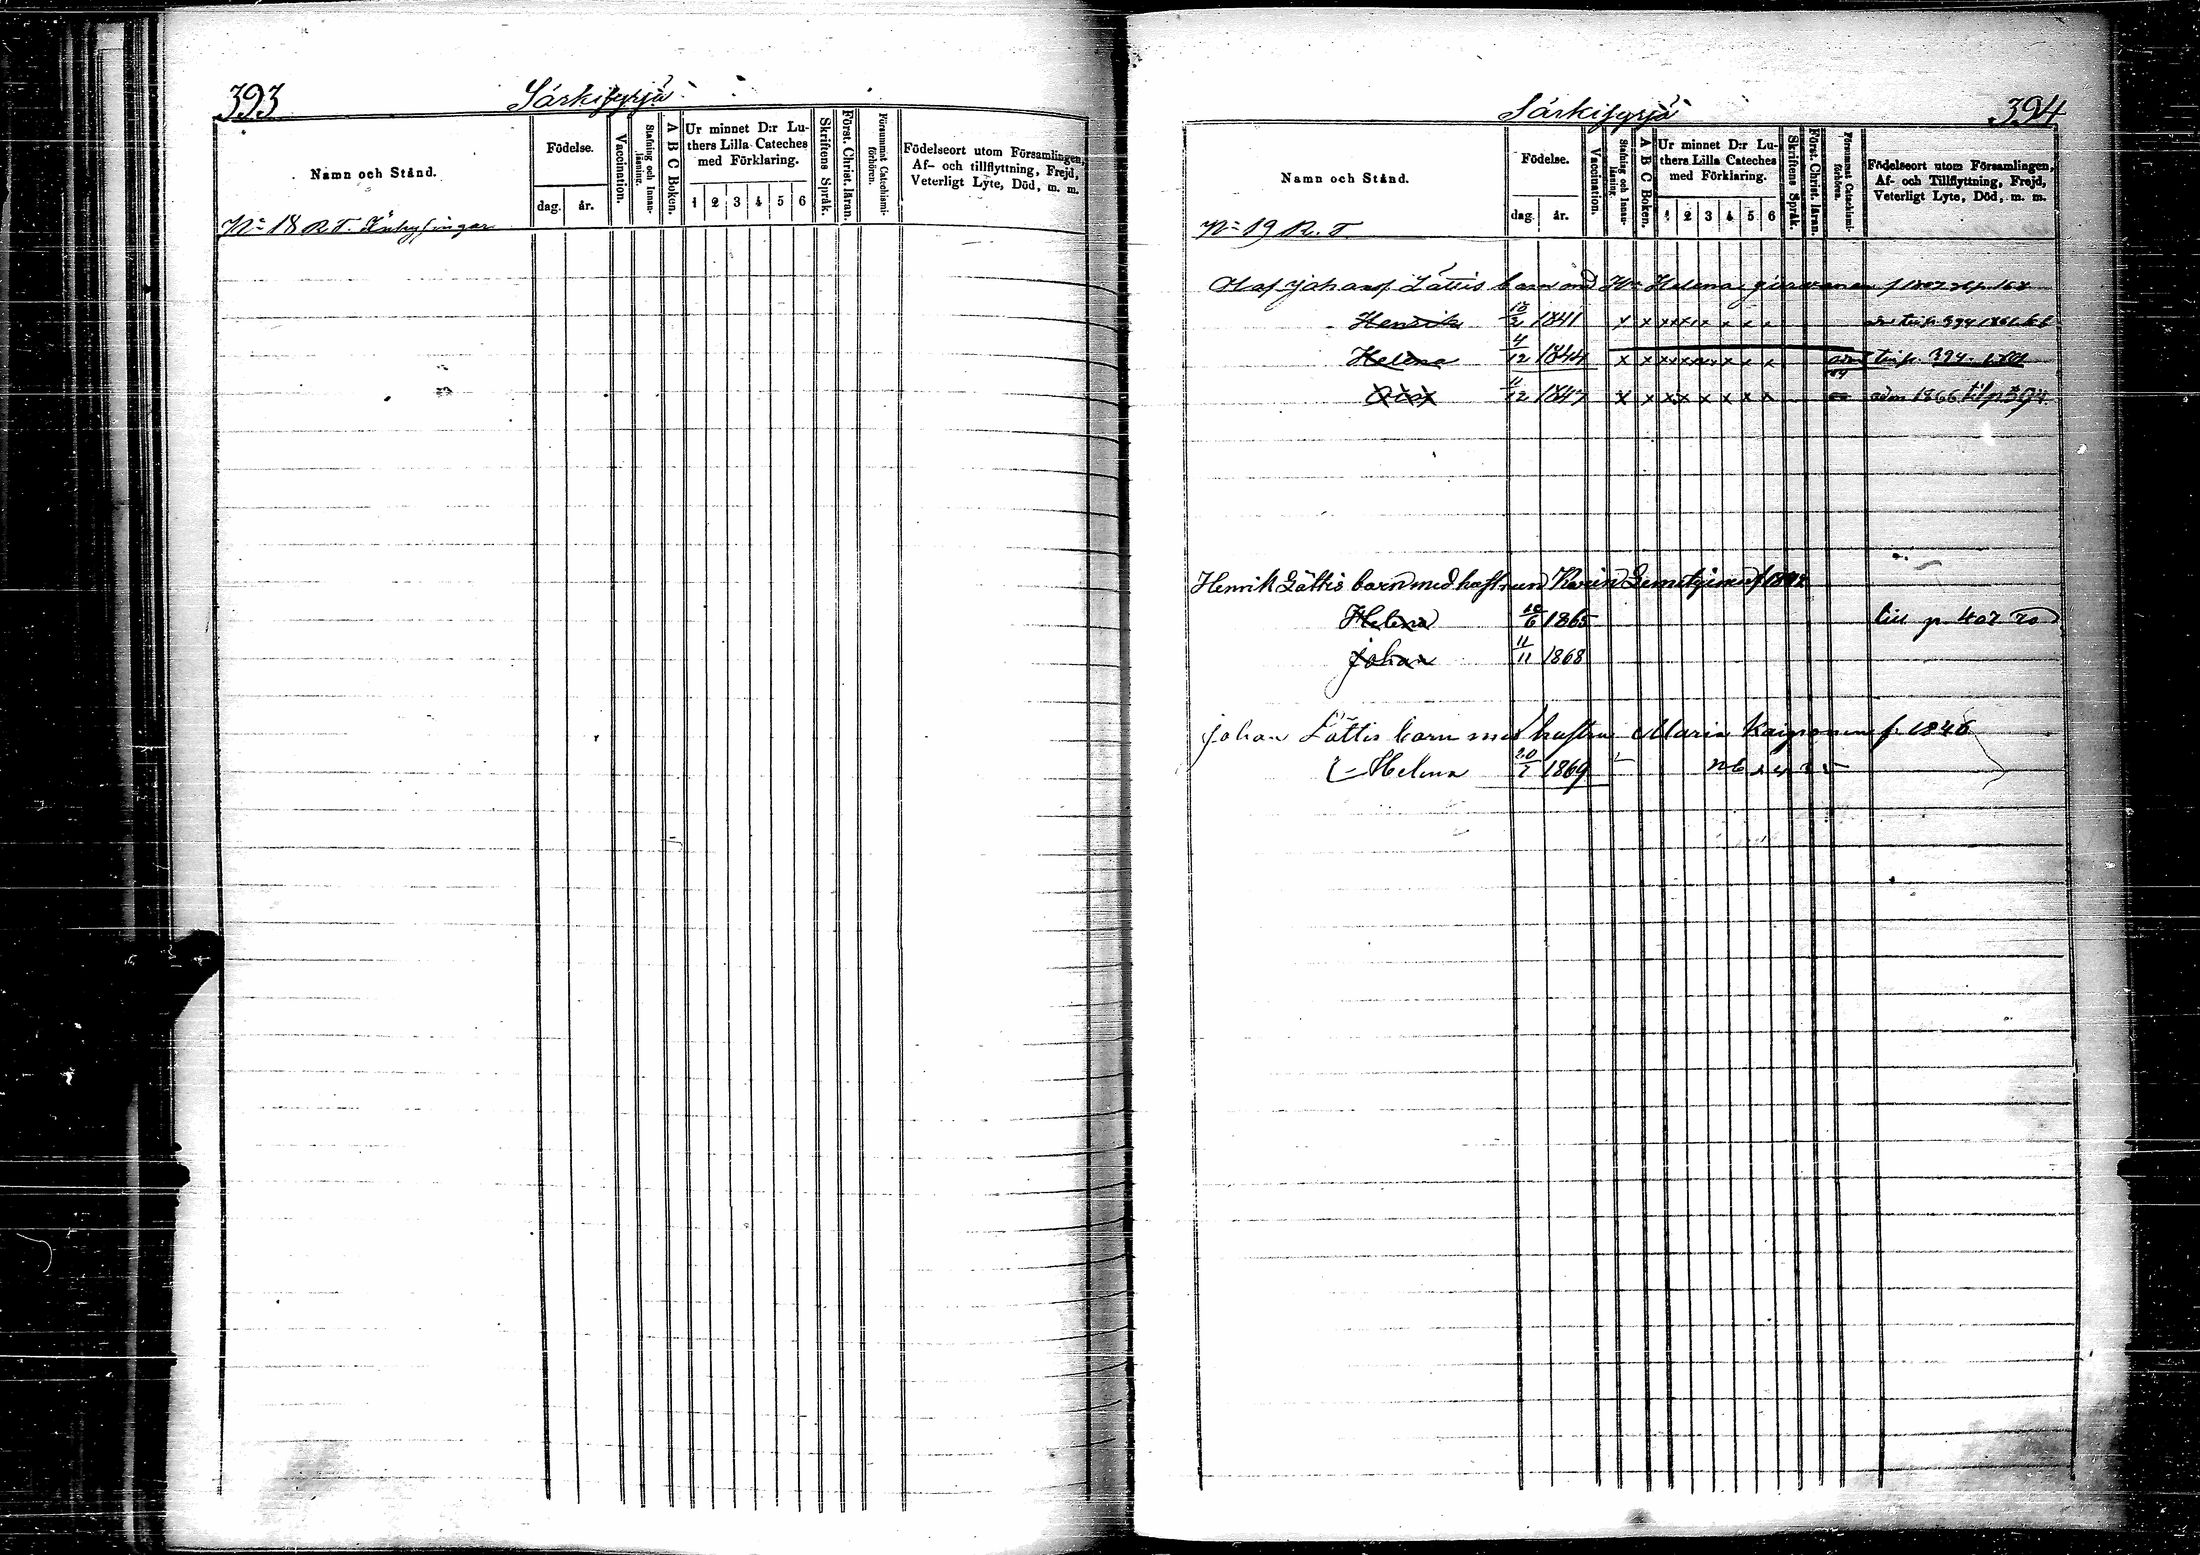 393
Särkisyrjä
Namn och Stånd.
Födelse.
dag. år.
Vaccination.
Stafning och Innanläsning.
A B C Boken.
Ur minnet D:r Lu-
thers Lilla Cateches
med Förklaring.
1 2 3 4 5 6
Skriftens Språk.
Först. Christ. läran.
Försummat Catechismi-
förhören.
Födelseort utom Församlingen,
Af- och tillflyttning, Frejd,
Veterligt Lyte, Död, m. m.
No 18 R. T.
Särkisyrjä
394
Namn och Stånd.
Födelse.
dag. år.
Vaccination.
Stafning och Innanläsning.
A B C Boken.
Ur minnet D:r Lu-
thers Lilla Cateches
med Förklaring.
1 2 3 4 5 6
Skriftens Språk.
Först. Christ. läran.
Försummat Catechismi-
förhören.
Födelseort utom Församlingen,
Af- och Tillflyttning, Frejd,
Veterligt Lyte, Död, m. m.
No 19 R. T.
Olaf Johanss. Lättis barn med Helena
Henrik 1841 x x x x x x x x x x
Helena 4/12 1844 x x x x x x x x x x 394
11/12 1847 x x x x x x x x x adm 1866 394
Henrik Lättis barn med hustrun Karin
Helena 10/6 1865 p 407
Johan 11/11 1868
Johan Lättis barn med hustru Maria f. 1846
Helena 1869